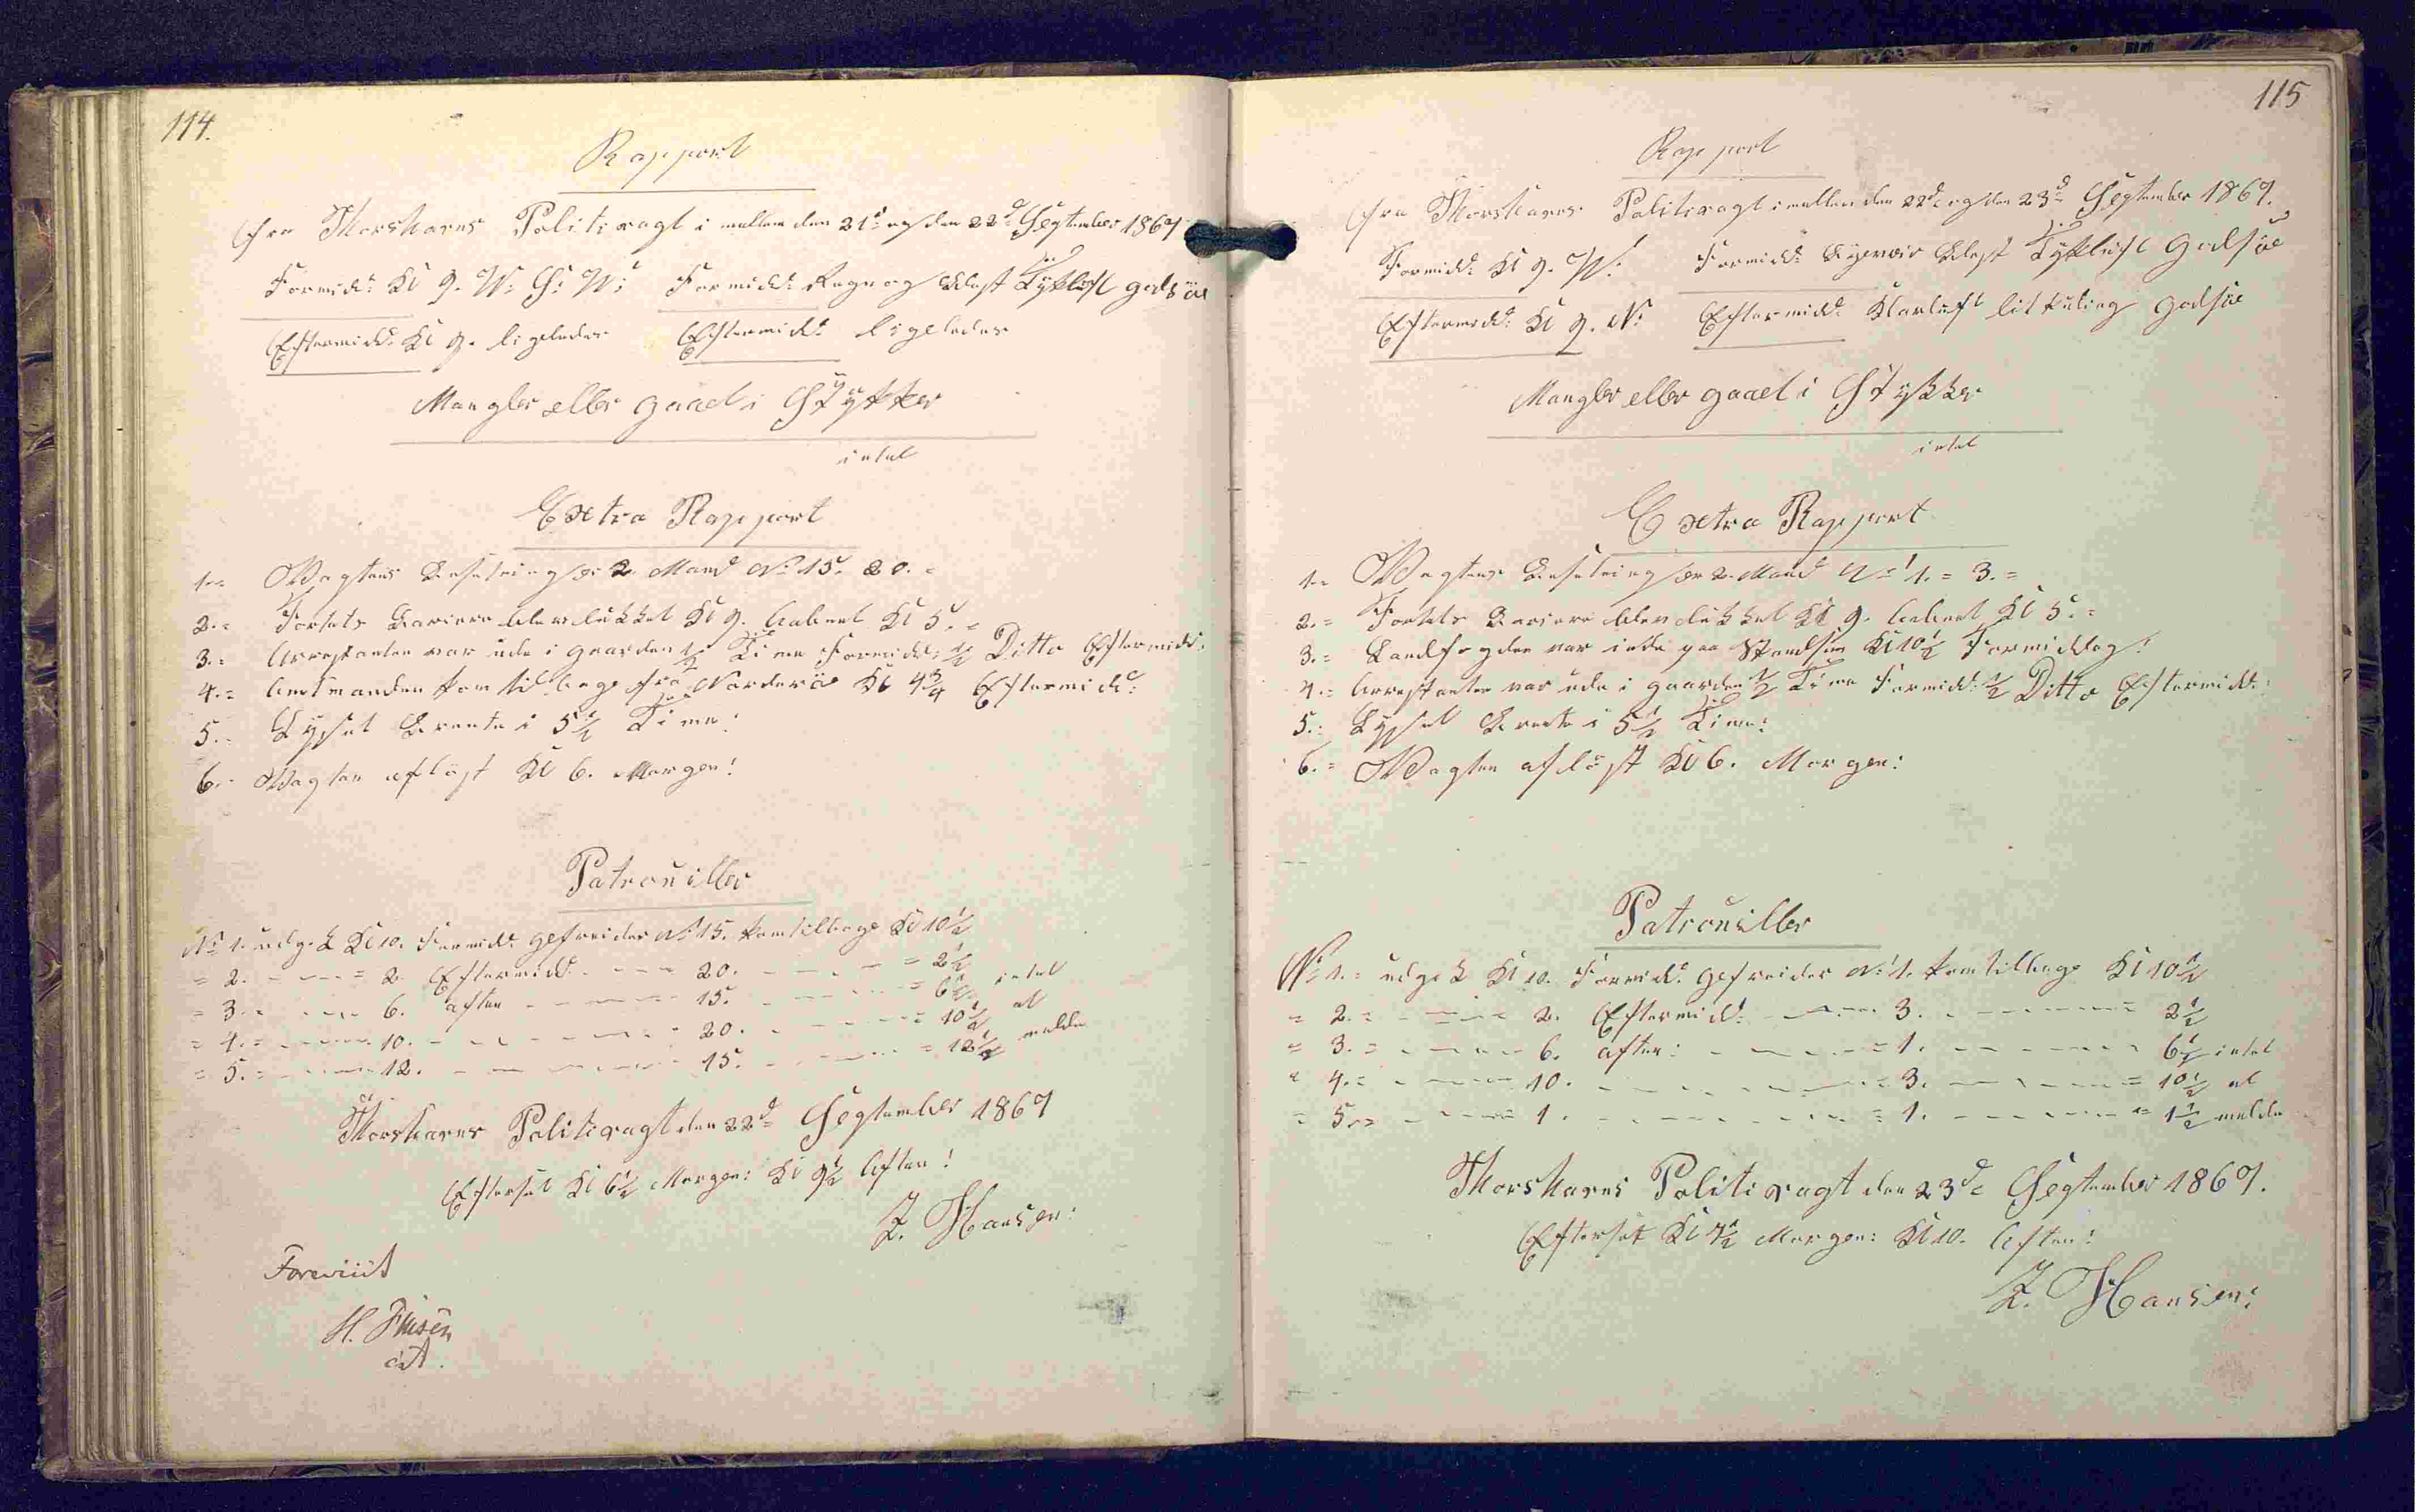 114.
Rapport
fra Thorshavns Politivagt i mellem den 21d og den 22d September 1867
Formidd: Kl 9. W. S. W: Formidd: Regn og Blæst Tyklüft godsüe
Eftermidd: Kl 9. ligeledes Eftermidd: ligeledes
Mangler eller gaaet i Stÿkker
intet
Extra Rapport
1.= Wagtens Besætning er 2 Mand No 15. 20.=
2.= Fortets Bariere blev lükket Kl 9. aabnet Kl 5.=
3.= Arrestanten var üde i gaarden 1/2 Time Formidd: 1/2 Ditto Eftermidd:
4.= Amtmanden kom tilbage fra Norderöe Kl 4 3/4 Eftermidd:
5.= Lyset Brente i 5 1/2 Time:
6.= Wagten aflöst Kl 6. Morgen!
Patroüiller
No 1. üdgik Kl 10. Formidd: gefreider No 15. kom tilbage Kl 10 1/2
= 2. - - - = 2. Eftermidd: - - - 20. - - - = 2 1/2
= 3. - - - 6. aften - - - 15. - - - = 6 1/2 intet
= 4. = - - - 10. - - - 20. - - - = 10 1/2 at
= 5. = - - - 12. - - - 15. - - - = 12 1/2 melde
Thorshavns Politivagt den 22d= September 1867
Efterset Kl 6 1/2 Morgen: Kl 9 1/2 Aften!
Z. Hansen:
Foreviist
H. Finsen
cst.
115
Rapport
fra Thorshavns Politivagt i mellem den 22d og den 23d September 1867.
Formidd: Kl 9. W. Formidd: Bÿeveir Blæst Tÿklüft Godsüe
Eftermidd: Kl 9. N: Eftermidd: Klarlüft lit Küling godsüe
Mangler eller gaaet i Stÿkker
intet
Extra Rapport
1.= Wagtens Besætning er 2. Mand No 1. = 3.=
2.= Fortets Bariere blev lükket Kl 9. aabnet Kl 5.=
3.= Landfogden var inde paa Skandsen Kl 10 1/2 Formiddag!
4.= Arrestanten var üde i gaarden 1/2 Time Formidd: 1/2 Ditto Eftermidd:
5.= Lÿset Brente i 5 1/2 Time:
6.= Wagten aflöst Kl 6. Morgen:
Patroüiller
No 1.= üdgik Kl 10. Formidd: gefreider No 1. kom tilbage Kl 10 1/2
= 2. = - - - 2. Eftermidd: - - - 3. - - - = 2 1/2
= 3. = - - - 6. aften: - - - = 1. - - - 6 1/2 intet
= 4. = - - - 10. - - - = 3. - - - = 10 1/2 at
= 5. = - - - 1. - - - = 1. - - - = 1 1/2 melde
Thorshavns Politivagt den 23d= September 1867.
Efterset Kl 7 1/2 Morgen: Kl 10. Aften!
Z. Hansen: